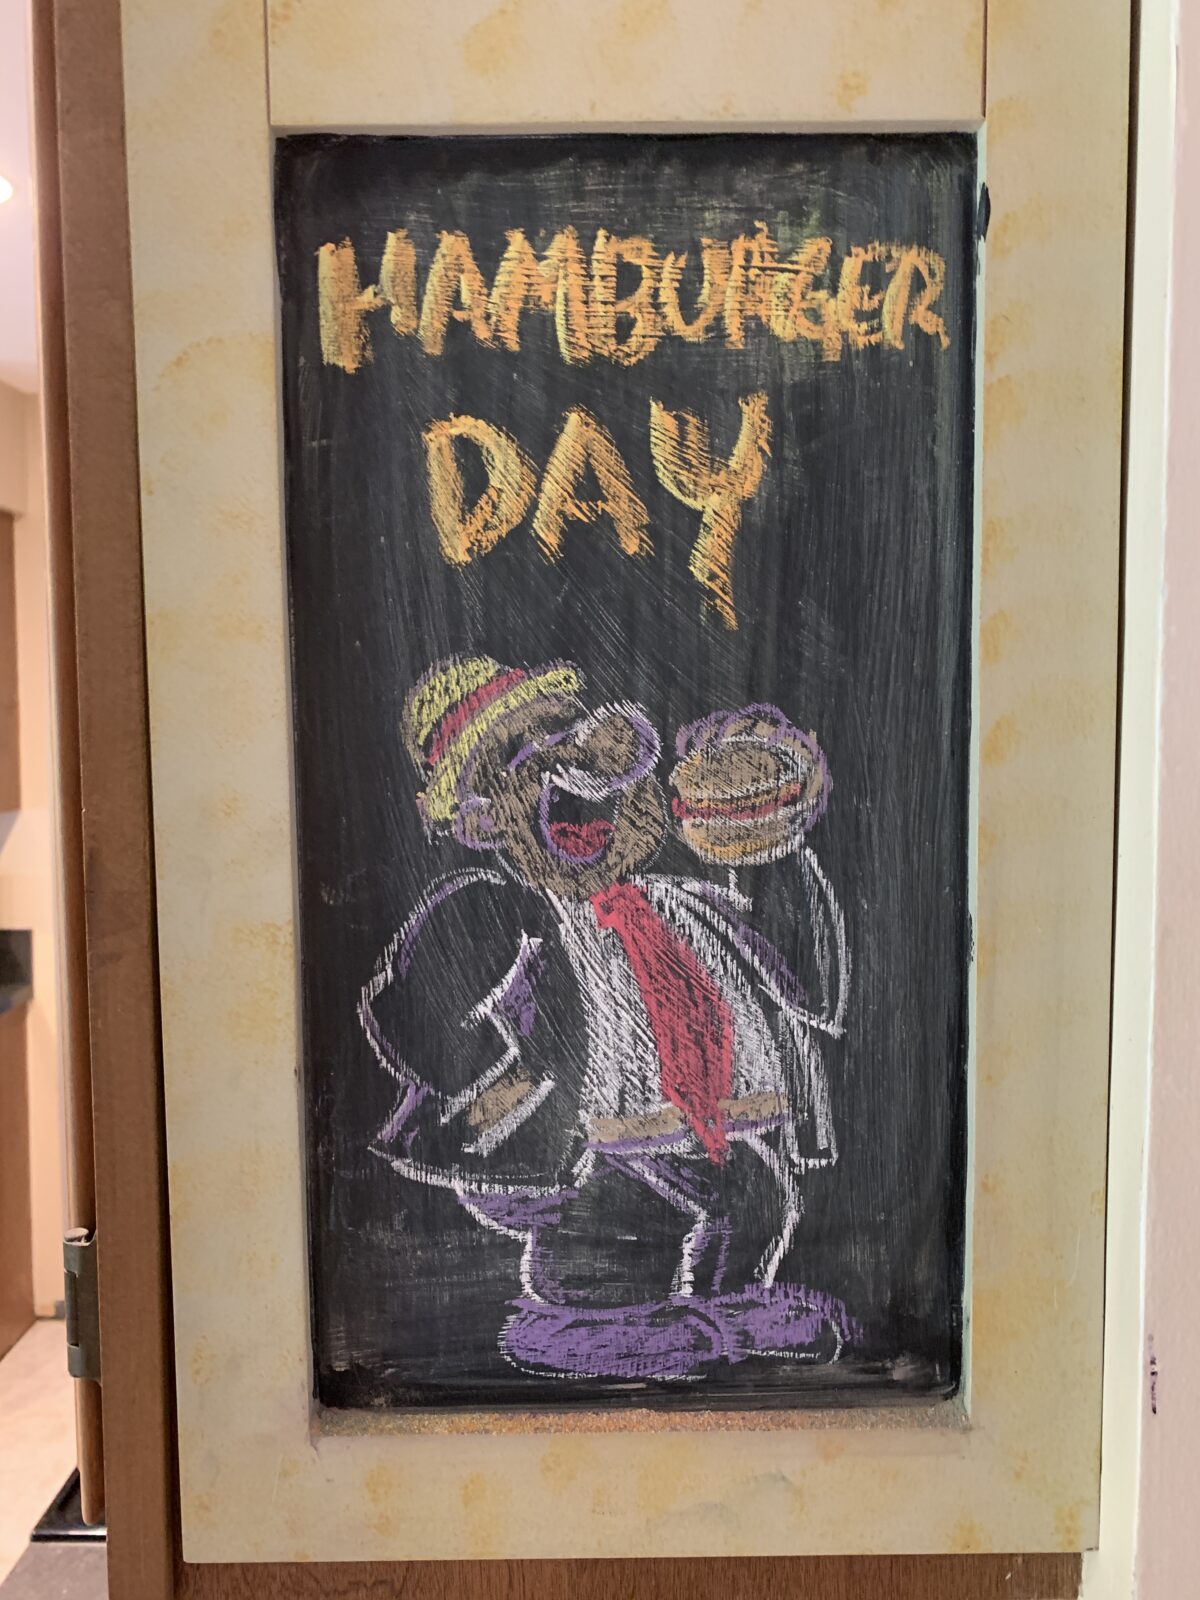 HAMBURGER
DAY